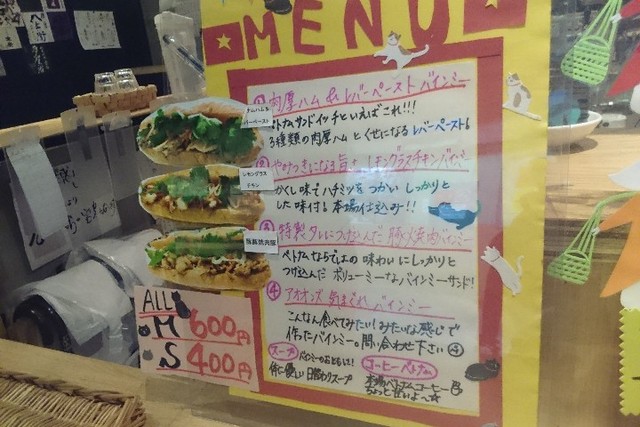 MENU
① 肉厚ハム & レバーペースト バインミー
ベトナムサンドイッチといえばこれ!!!
3種類の肉厚ハムとくせになるレバーペースト!
② やみつきになる旨さ レモングラスチキンバインミー
かくし味でハチミツをつかい しっかりと
した味付! 本場仕込み!!
③ 特製タレにつけ込んだ 豚焼肉バインミー
ベトナムならではの味わいにしっかりと
つけ込んだ ボリューミーなバインミーサンド!
④ アオオンズ 気まぐれ バインミー
こんなん食べてみたい!みたいな感じで
作ったバインミー。問い合わせ下さい④
スープ
バインミーのおともに!
体に優しい 日替わりスープ
コーヒーベトナム
本場ベトナムコーヒー
ちょっと甘いよ〜☆
ナムハム&
レバーペースト
レモングラス
チキン
豚焼肉
ALL
M 600円
S 400円